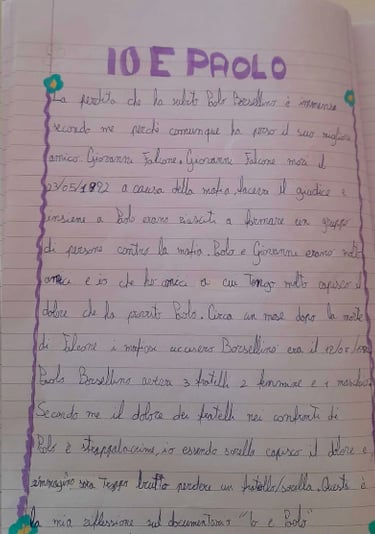 IO E PAOLO
La perdita che ha subito Paolo Borsellino è immensa
secondo me perché comunque ha perso il suo migliore
amico Giovanni Falcone. Giovanni Falcone morì il
23/05/1992 a causa della mafia, faceva il giudice e
insieme a Paolo erano riusciti a formare un gruppo
di persone contro la mafia. Paolo e Giovanni erano molto
amici e io che ho amici a cui tengo molto capisco il
dolore che ha provato Paolo. Circa un mese dopo la morte
di Falcone i mafiosi uccisero Borsellino era il
Paolo Borsellino aveva 3 fratelli 2 femmine e 1 maschio.
Secondo me il dolore dei fratelli nei confronti di
Paolo è strappalacrime, io essendo sorella capisco il dolore e
immagino sia troppo brutto perdere un fratello/sorella. Questa è
la mia riflessione sul documentario "Io e Paolo"